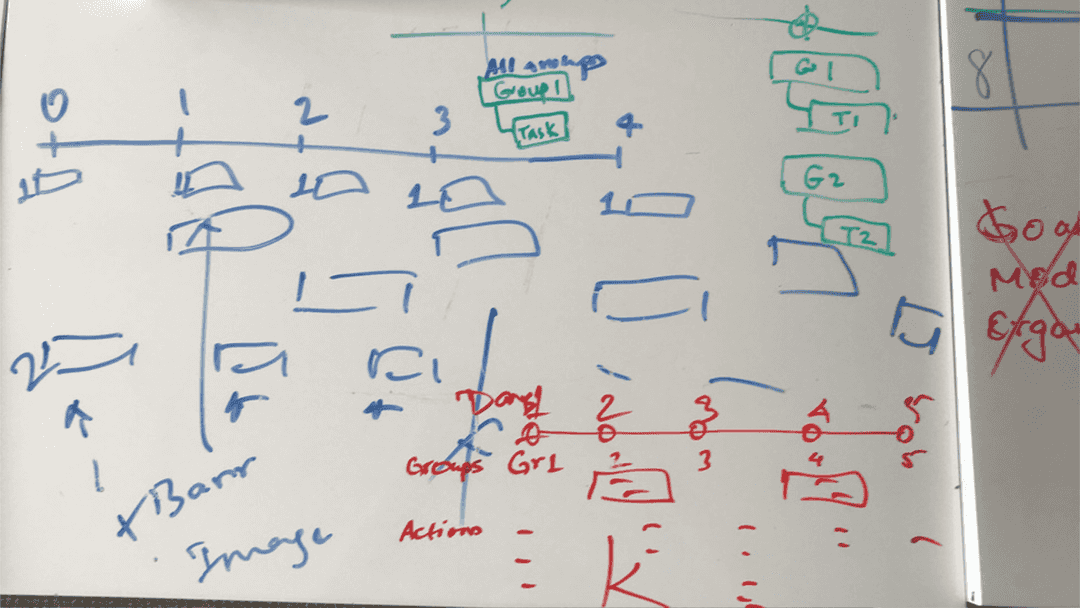 0 1 2 3 4
All groups
Group 1
Task
G1
T1
G2
T2
8
1 1 1 1 1
2
Image
1 2 3 4 5
Groups Gr1 2 3 4 5
Actions
K
Goa
Mod
Ergo